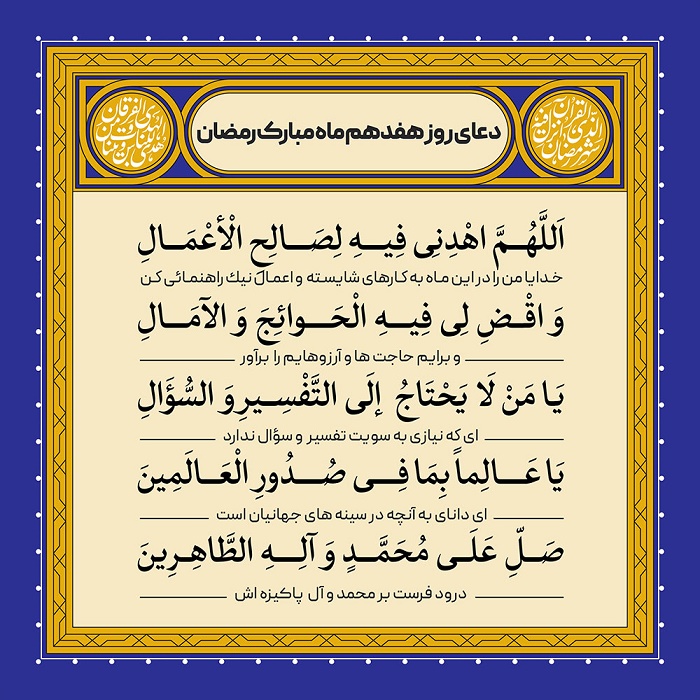 دعای روز هفدهم ماه مبارک رمضان
اَللَّهُمَّ اهْدِنِی فِیهِ لِصَالِحِ الْأَعْمَالِ
خدایا من را در این ماه به کارهای شایسته و اعمال نیك راهنمائی کن
وَ اقْضِ لِی فِیهِ الْحَوائِجَ وَ الآمَالِ
و برایم حاجت ها و آرزوهایم را برآور
یَا مَنْ لَا یَحْتَاجُ إِلَی التَّفْسِیرِ وَ السُّؤَالِ
ای که نیازی به سویت تفسیر و سؤال ندارد
یَا عَالِماً بِمَا فِی صُدُورِ الْعَالَمِینَ
ای دانای به آنچه در سینه های جهانیان است
صَلِّ عَلَی مُحَمَّدٍ وَ آلِهِ الطَّاهِرِینَ
درود فرست بر محمد و آل پاکیزه اش